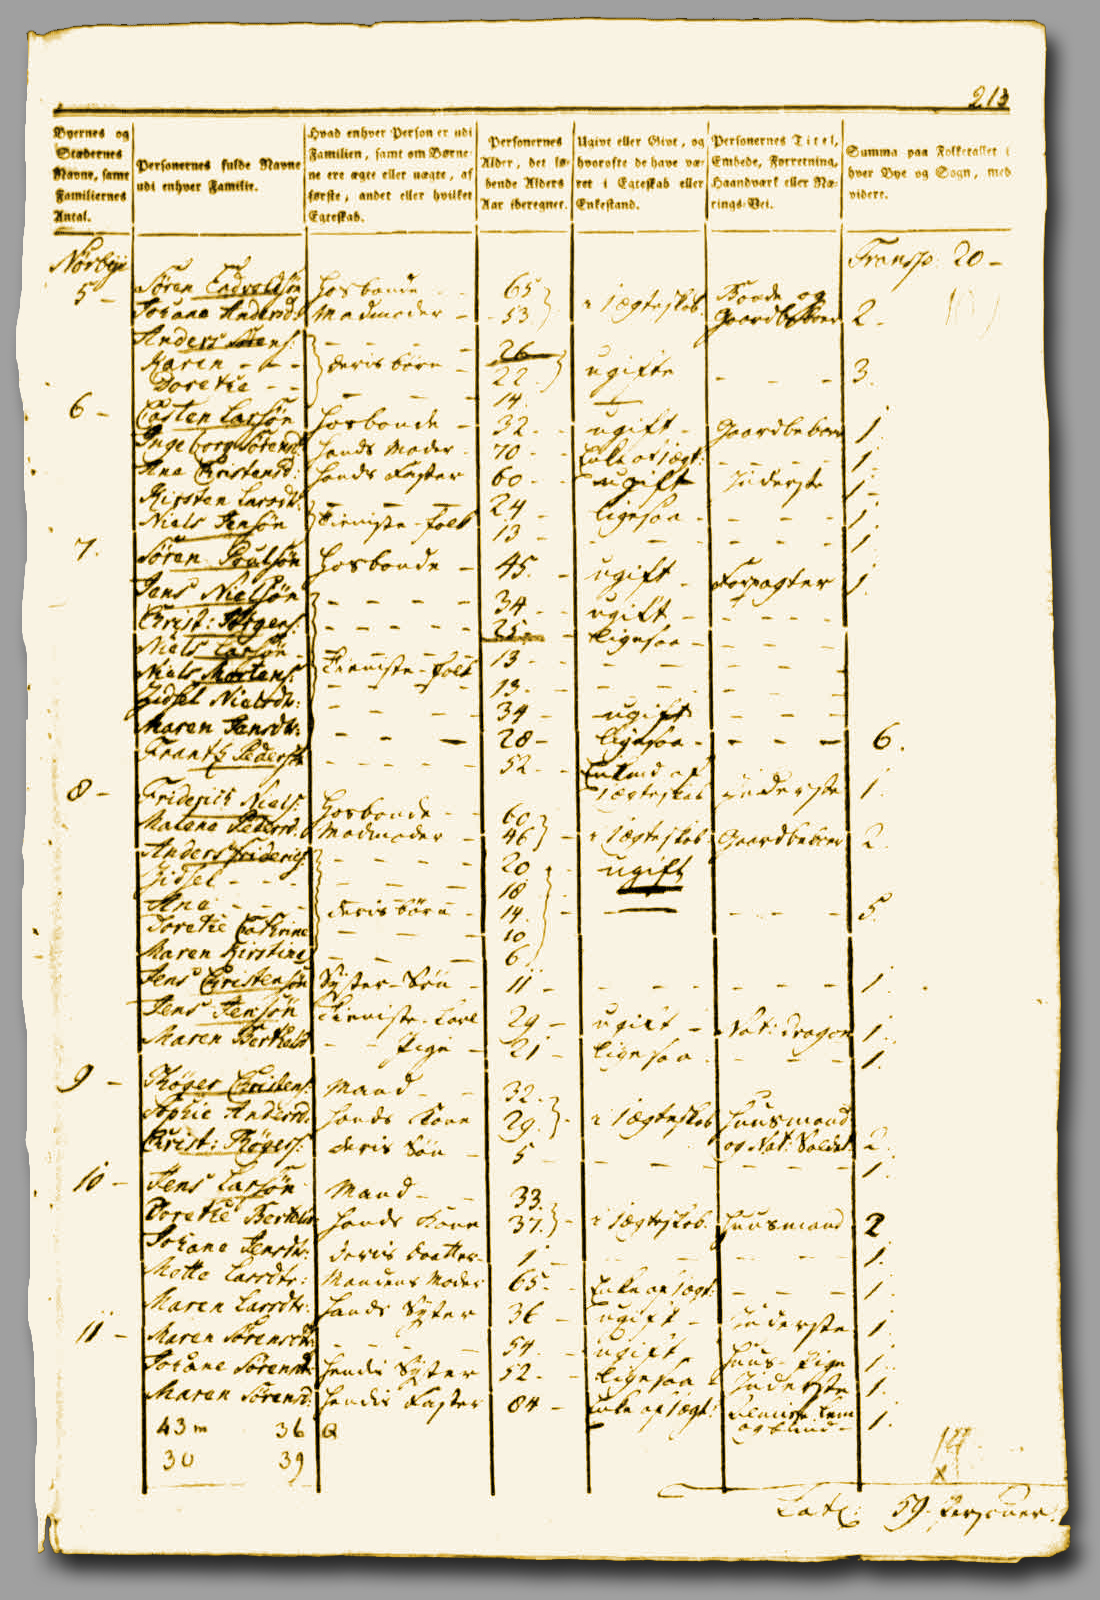 213
Byernes og Stædernes Navne, samt Familiernes Antal.
Personernes fulde Navne udi enhver Familie.
Hvad enhver Person er udi Familien, samt om Børnene ere ægte eller uægte, af første, andet eller hvilket Egteskab.
Personernes Alder, det løbende Alders Aar iberegnet.
Ugivt eller Givt, og hvorofte de have været i Egteskab eller Enkestand.
Personernes Titel, Embede, Forretning, Haandværk eller Nærings-Vei.
Summa paa Folketallet i hver Bye og Sogn, med videre.
Nørbye Transp: 20 -
5 - Sören Endvoldsön Hosbonde - - 65 i ægteskab Bonde og
Johane Andersd: Madmoder - 53. Gaardbeboer 2 -
Anders Sörens: - - - - 26
Karen - - - deris börn - 22. ugifte - - - 3.
Doretie - - - - - 14.
6 - Casten Larsön Hosbonde - 32. - ugift - Gaardbeboer 1.
Ingeborg Sörensd: Hands Moder - 70 - Enke af ægt: - - - 1.
Ane Christensd: Hands Faster 60 - ugift Inderste 1 -
Kirsten Larsdt: - - - 24 - ligesaa - - - - 1.
Niels Jensön Tieniste-folk 13 - - - - - 1.
7. Sören Poulsön Hosbonde - 45. - ugift - Forpagter 1.
Jens Nielsön - - - - 34 - - ugift - - - - -
Christ: Thögers: - - - - - 25 - - ligesaa - - - -
Niels Larsön - - - - 13 - - - - - -
Niels Mortens: Tieniste-folk 13. - - - - - -
Zidsel Nielsdtr: - - - - 34 - ugift - - -
Maren Jensdtr: - - - 28 - ligesaa - - - - 6.
Frantz Pedersön - - - - - 52 - - Enkemand af
ægteskab Inderste 1.
8 - Friderich Niels: Hosbonde - - 60
Malene Pedersd: Madmoder - 46 - i ægteskab Gaardbeboer 2.
Anders Friderichs: - - - - 20 - ugift
Zidsel - - - - - - - 18
Ane - - - deris börn - 14. - - - - - 5.
Doretie Cathrine - - - - 10
Maren Kirstine - - - 6
Jens Christensön Syster-Sön - 11 - - - - - - - 1.
Jens Jensön Tieniste-Karl 29 - ugift - Nat: Dragon 1.
Maren Berthelsd - - Pige - 21 - ligesaa - - - 1.
9 - Thöger Christens: Mand - - 32.
Sophie Andersd: Hands Kone 29. - i ægteskab Huusmand
og Nat: Soldat 2.
Christ: Thögers: deris Sön - 5 - - - - - - - 1.
10 - Jens Larsön Mand - - 33.
Doretie Bertelsd: Hands Kone 37. - i ægteskab. Huusmand 2
Johane Jensdtr: deris Daatter - 1 - - - - - - 1.
Mette Larsdtr: Mandens Moder 65 - - Enke af ægt: - - - 1.
Maren Larsdtr: Hands Syster 36 - ugift - Inderste 1.
11 - Maren Sörensdt: - - - - 54. - ugift Huus-Pige 1.
Johane Sörensdt: Hendis Syster 52. - ligesaa Inderste 1.
Maren Sörensd: Hendis Faster 84 - Enke af ægt: Almisse Lem
og blind - 1.
43 m 36 Q
30 39
14
x
Lat: 59 - Personer.